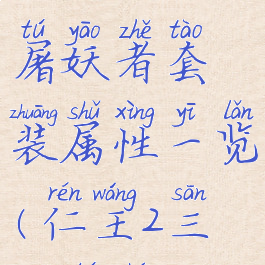 tú yāo zhě tào
屠妖者套
zhuāng shǔ xìng yī lǎn
装属性一览
rén wáng sān
(仁王2三